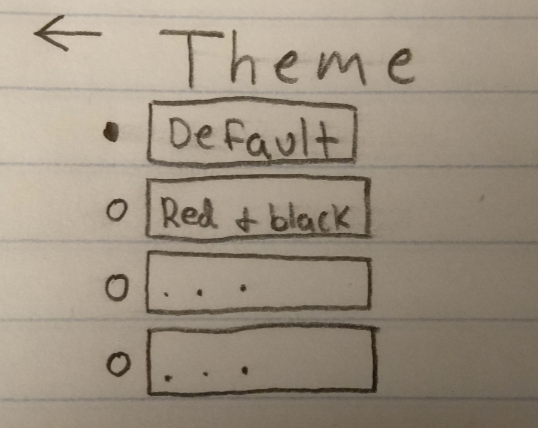 ← Theme
Default
Red + black
. . .
. . .